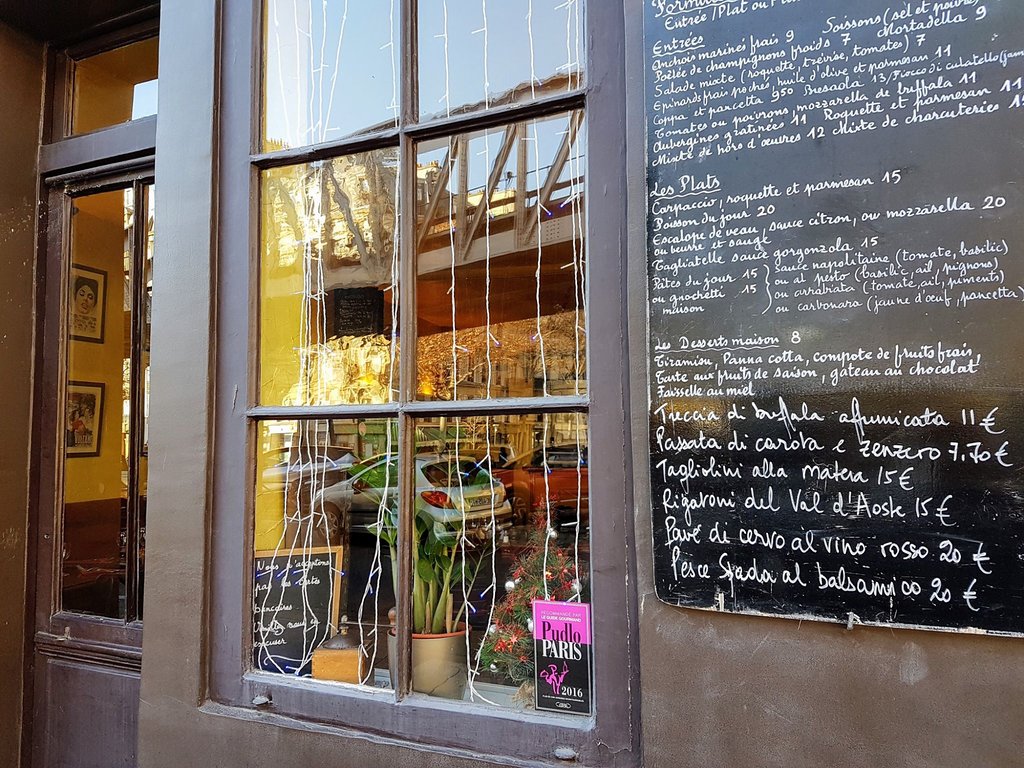 Formule
Entrée/Plat ou
Entrées
Anchois marinés frais 9 Soissons (sel et poivre)
Poêlée de champignons froids 7 Mortadella 9
Salade mixte (roquette, trévise, tomates) 7
Epinards frais pochés, huile d'olive et parmesan 11
Coppa et pancetta 950 Bresaola 13/Fiocco di culatello (jam
Tomates ou poivrons, mozzarella de buffala 11
Aubergines gratinées 11 Roquette et parmesan 11
Mixte de hors d'œuvres 12 Mixte de charcuteries
Les Plats
Carpaccio, roquette et parmesan 15
Poisson du jour 20
Escalope de veau, sauce citron, ou mozzarella 20
ou beurre et sauge
Tagliatelle sauce gorgonzola 15
Pâtes du jour 15 sauce napolitaine (tomate, basilic)
ou gnochetti 15 ou al pesto (basilic, ail, pignons)
maison ou arrabiata (tomate, ail, piments)
ou carbonara (jaune d'oeuf, pancetta)
Les Desserts maison 8
Tiramisu, Panna cotta, compote de fruits frais,
Tarte aux fruits de saison, gâteau au chocolat
Faisselle au miel
Treccia di buffala affumicata 11 €
Passata di carota e zenzero 7,70 €
Tagliolini alla matera 15 €
Rigatoni del Val d'Aoste 15 €
Pavé di cervo al vino rosso 20 €
Pesce Spada al balsamico 20 €
Nous n'acceptons
pas les cartes
bancaires
Veuillez nous en
excuser
RECOMMANDÉ PAR
LE GUIDE GOURMAND
Pudlo
PARIS
2016